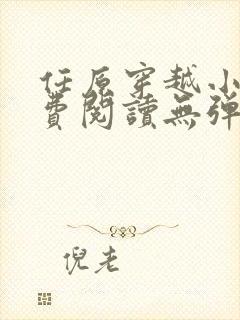 任原穿越小
費閱讀無彈
倪老